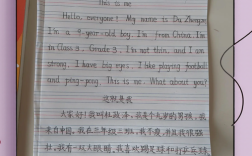 This is me
Hello, everyone! My name is Du Zhengze
I'm a 9-year-old boy. I'm from China. I'm
in Class 3, Grade 3. I'm not thin, and I am
strong. I have big eyes. I like playing football
and ping-pong. This is me. What about you?
这就是我
大家好!我叫杜政泽,我是个九岁的男孩,我
来自中国。我在三年级三班,我不瘦,并且我很强
壮,我有一双大眼睛,我喜欢踢足球和打乒乓球